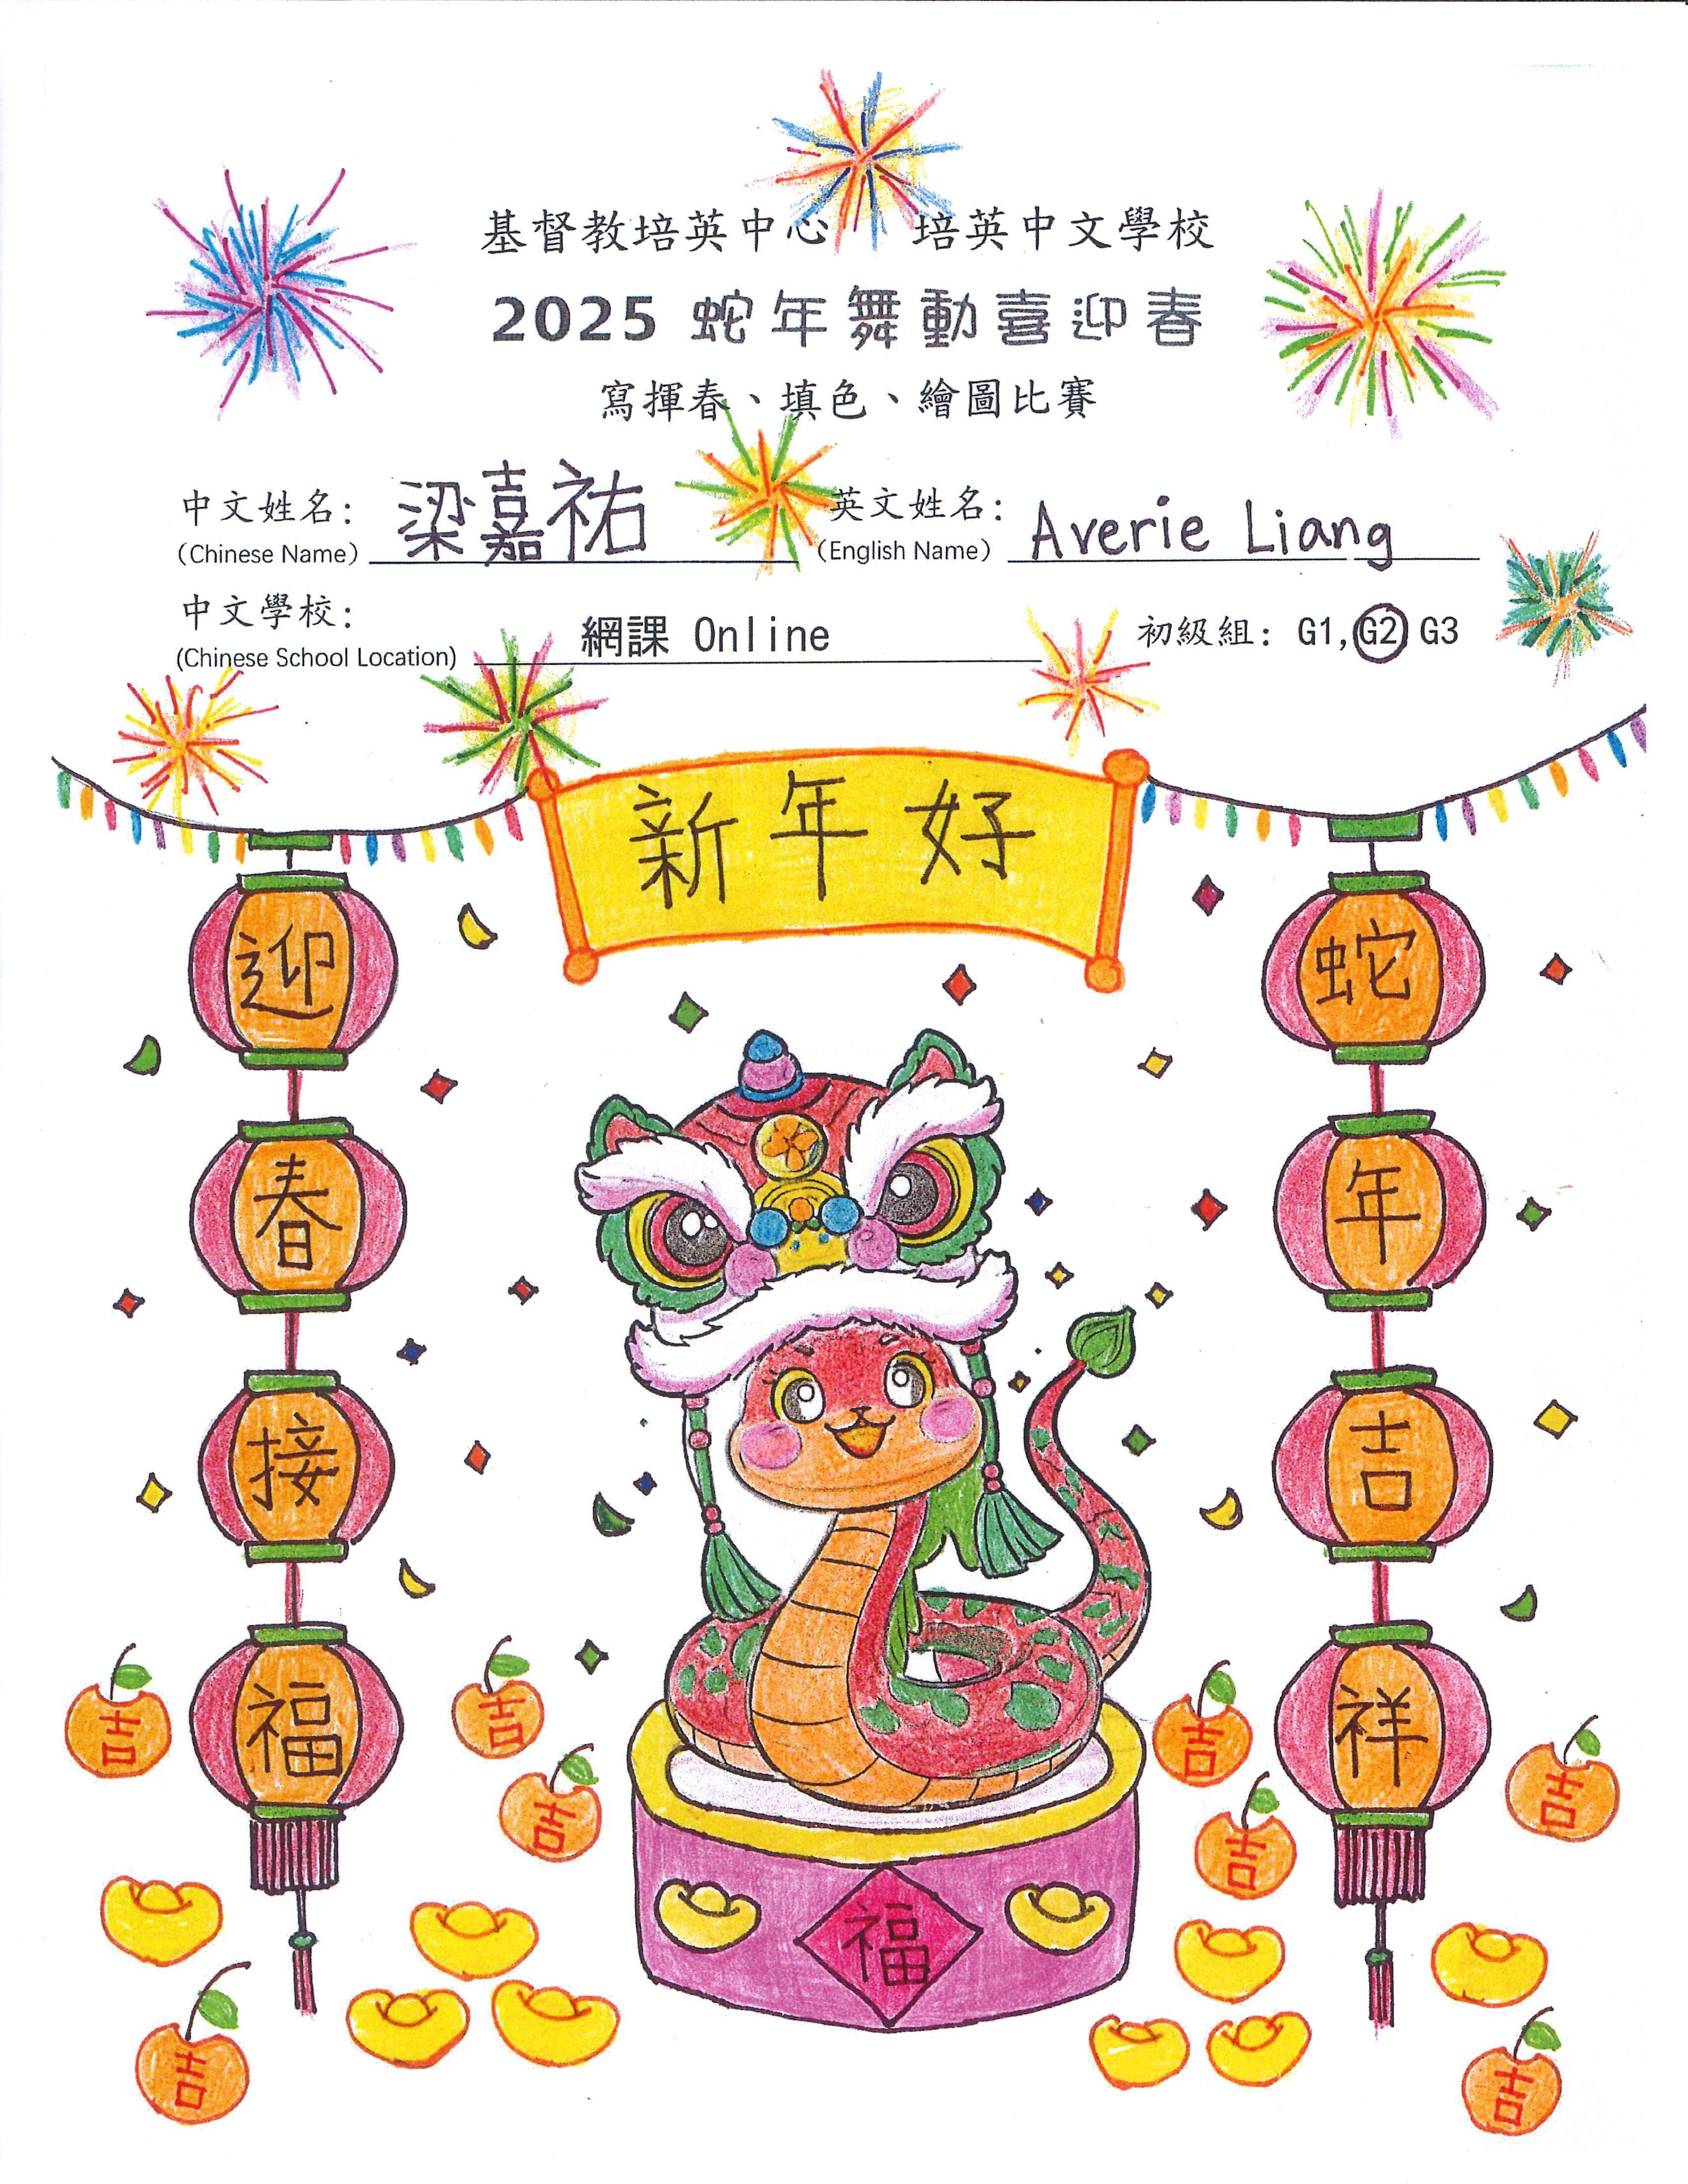 基督教培英中心 培英中文學校
2025 蛇年舞動喜迎春
寫揮春、填色、繪圖比賽
中文姓名: 梁嘉祐 英文姓名: Averie Liang
(Chinese Name) (English Name)
中文學校: 網課 Online 初級組: G1, G2 G3
(Chinese School Location)
新年好
迎
春
接
福
蛇
年
吉
祥
吉
吉
吉
吉
吉
吉
福
吉
吉